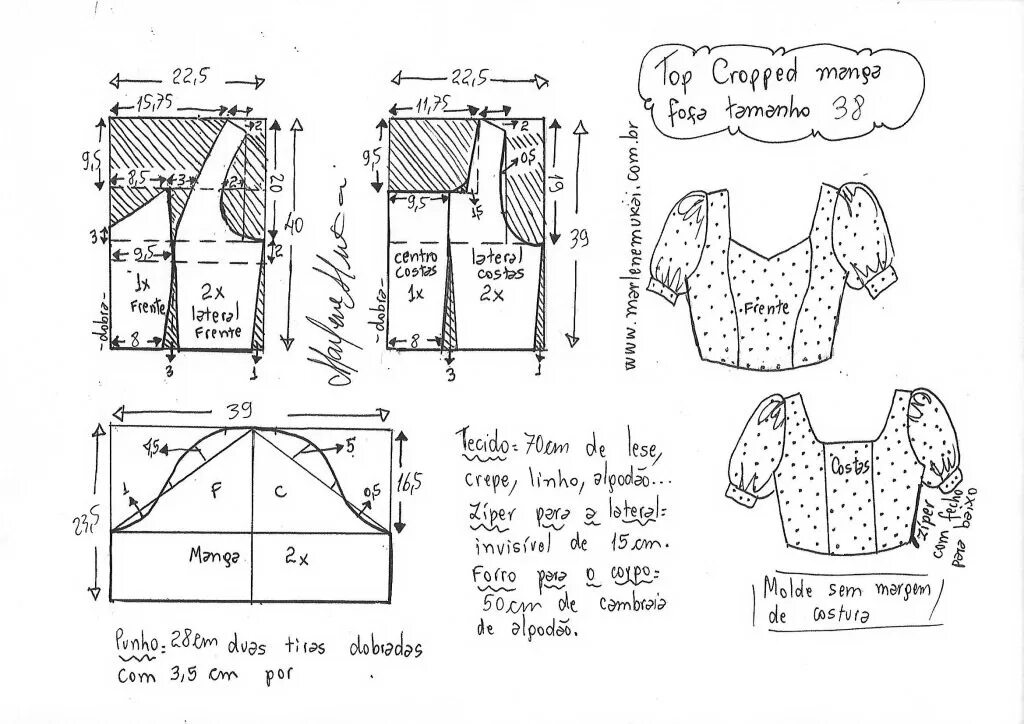 Top Cropped manga
fofa tamanho 38
www.marlenemukai.com.br
22,5
15,75
2
9,5
8,5
3
2
20
40
3
9,5
2
1x
Frente
2x
lateral
Frente
-dobra-
8
3
1
22,5
11,75
2
9,5
0,5
19
9,5
1,5
39
centro
costas
1x
lateral
costas
2x
-dobra-
8
3
1
Frente
39
4,5
5
16,5
F
C
1
0,5
23,5
Manga
2x
Tecido: 70cm de lese,
crepe, linho, algodão...
Zíper para a lateral:
invisível de 15cm.
Forro para o corpo:
50cm de cambraia
de algodão.
Costas
zíper
com fecho
para baixo
Molde sem margem
de costura
Punho: 28cm duas tiras dobradas
com 3,5 cm por